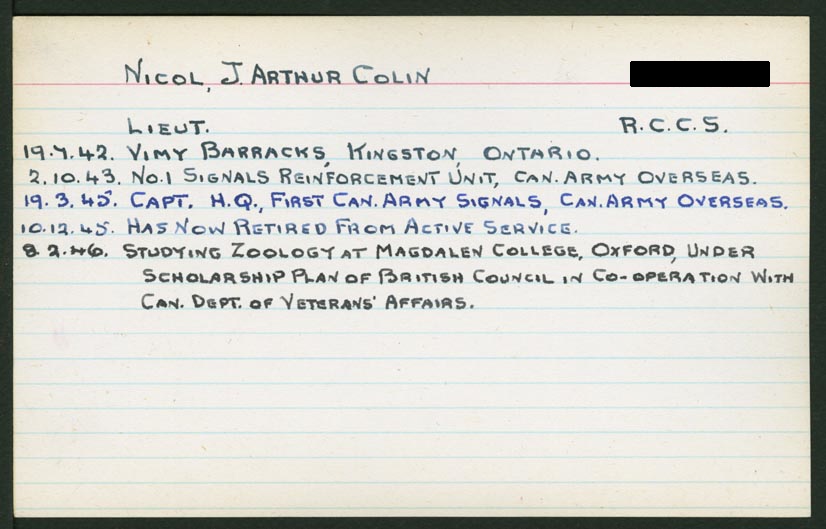 NICOL, J. ARTHUR COLIN
LIEUT. R.C.C.S.
19.7.42. VIMY BARRACKS, KINGSTON, ONTARIO.
2.10.43. NO.1 SIGNALS REINFORCEMENT UNIT, CAN. ARMY OVERSEAS.
19.3.45. CAPT. H.Q., FIRST CAN. ARMY SIGNALS, CAN. ARMY OVERSEAS.
10.12.45. HAS NOW RETIRED FROM ACTIVE SERVICE.
8.2.46. STUDYING ZOOLOGY AT MAGDALEN COLLEGE, OXFORD, UNDER
SCHOLARSHIP PLAN OF BRITISH COUNCIL IN CO-OPERATION WITH
CAN. DEPT. OF VETERANS' AFFAIRS.